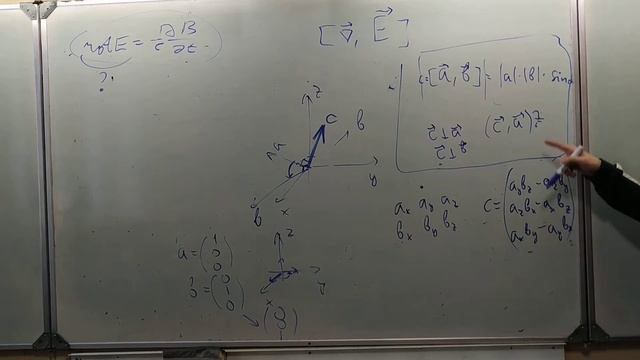 rot E = 1/c ∂B/∂t
?
[∇⃗, E⃗]
c=[a⃗, b⃗] = |a|·|b|·sin
c⃗⊥a⃗
c⃗⊥b⃗
z
c
b
y
x
b
a_x a_y a_z
b_x b_y b_z
c = (a_y b_z - a_z b_y
a_z b_x - a_x b_z
a_x b_y - a_y b_x)
a = (1 0 0)
b = (0 1 0)
z
x
y